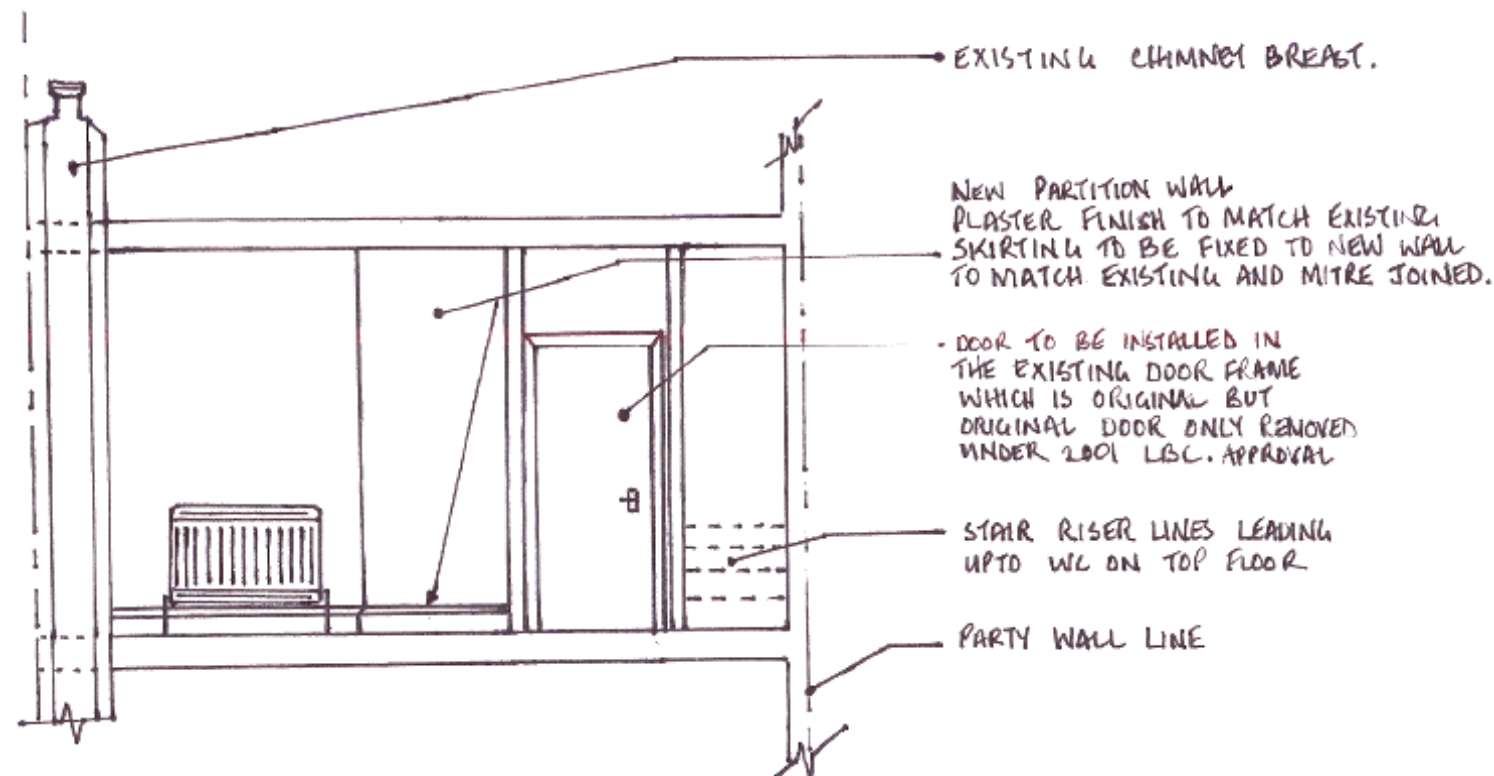 EXISTING CHIMNEY BREAST.
NEW PARTITION WALL
PLASTER FINISH TO MATCH EXISTING
SKIRTING TO BE FIXED TO NEW WALL
TO MATCH EXISTING AND MITRE JOINED.
DOOR TO BE INSTALLED IN
THE EXISTING DOOR FRAME
WHICH IS ORIGINAL BUT
ORIGINAL DOOR ONLY REMOVED
UNDER 2001 LBC. APPROVAL
STAIR RISER LINES LEADING
UPTO WC ON TOP FLOOR
PARTY WALL LINE